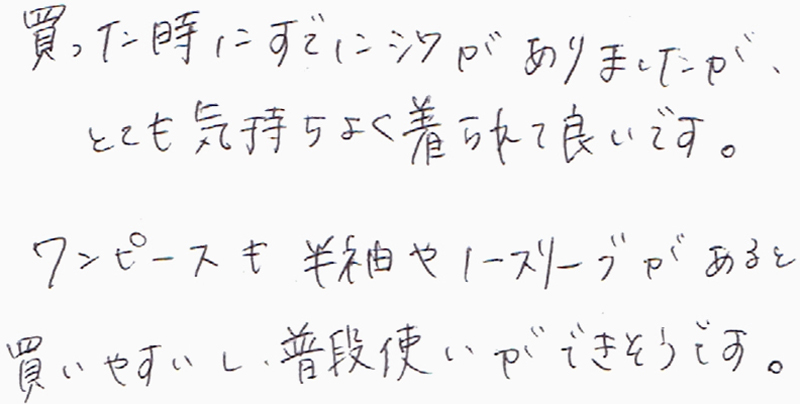 買った時にすでにシワがありましたが、
とても気持ちよく着られて良いです。
ワンピースも半袖やノースリーブがあると
買いやすいし、普段使いができそうです。